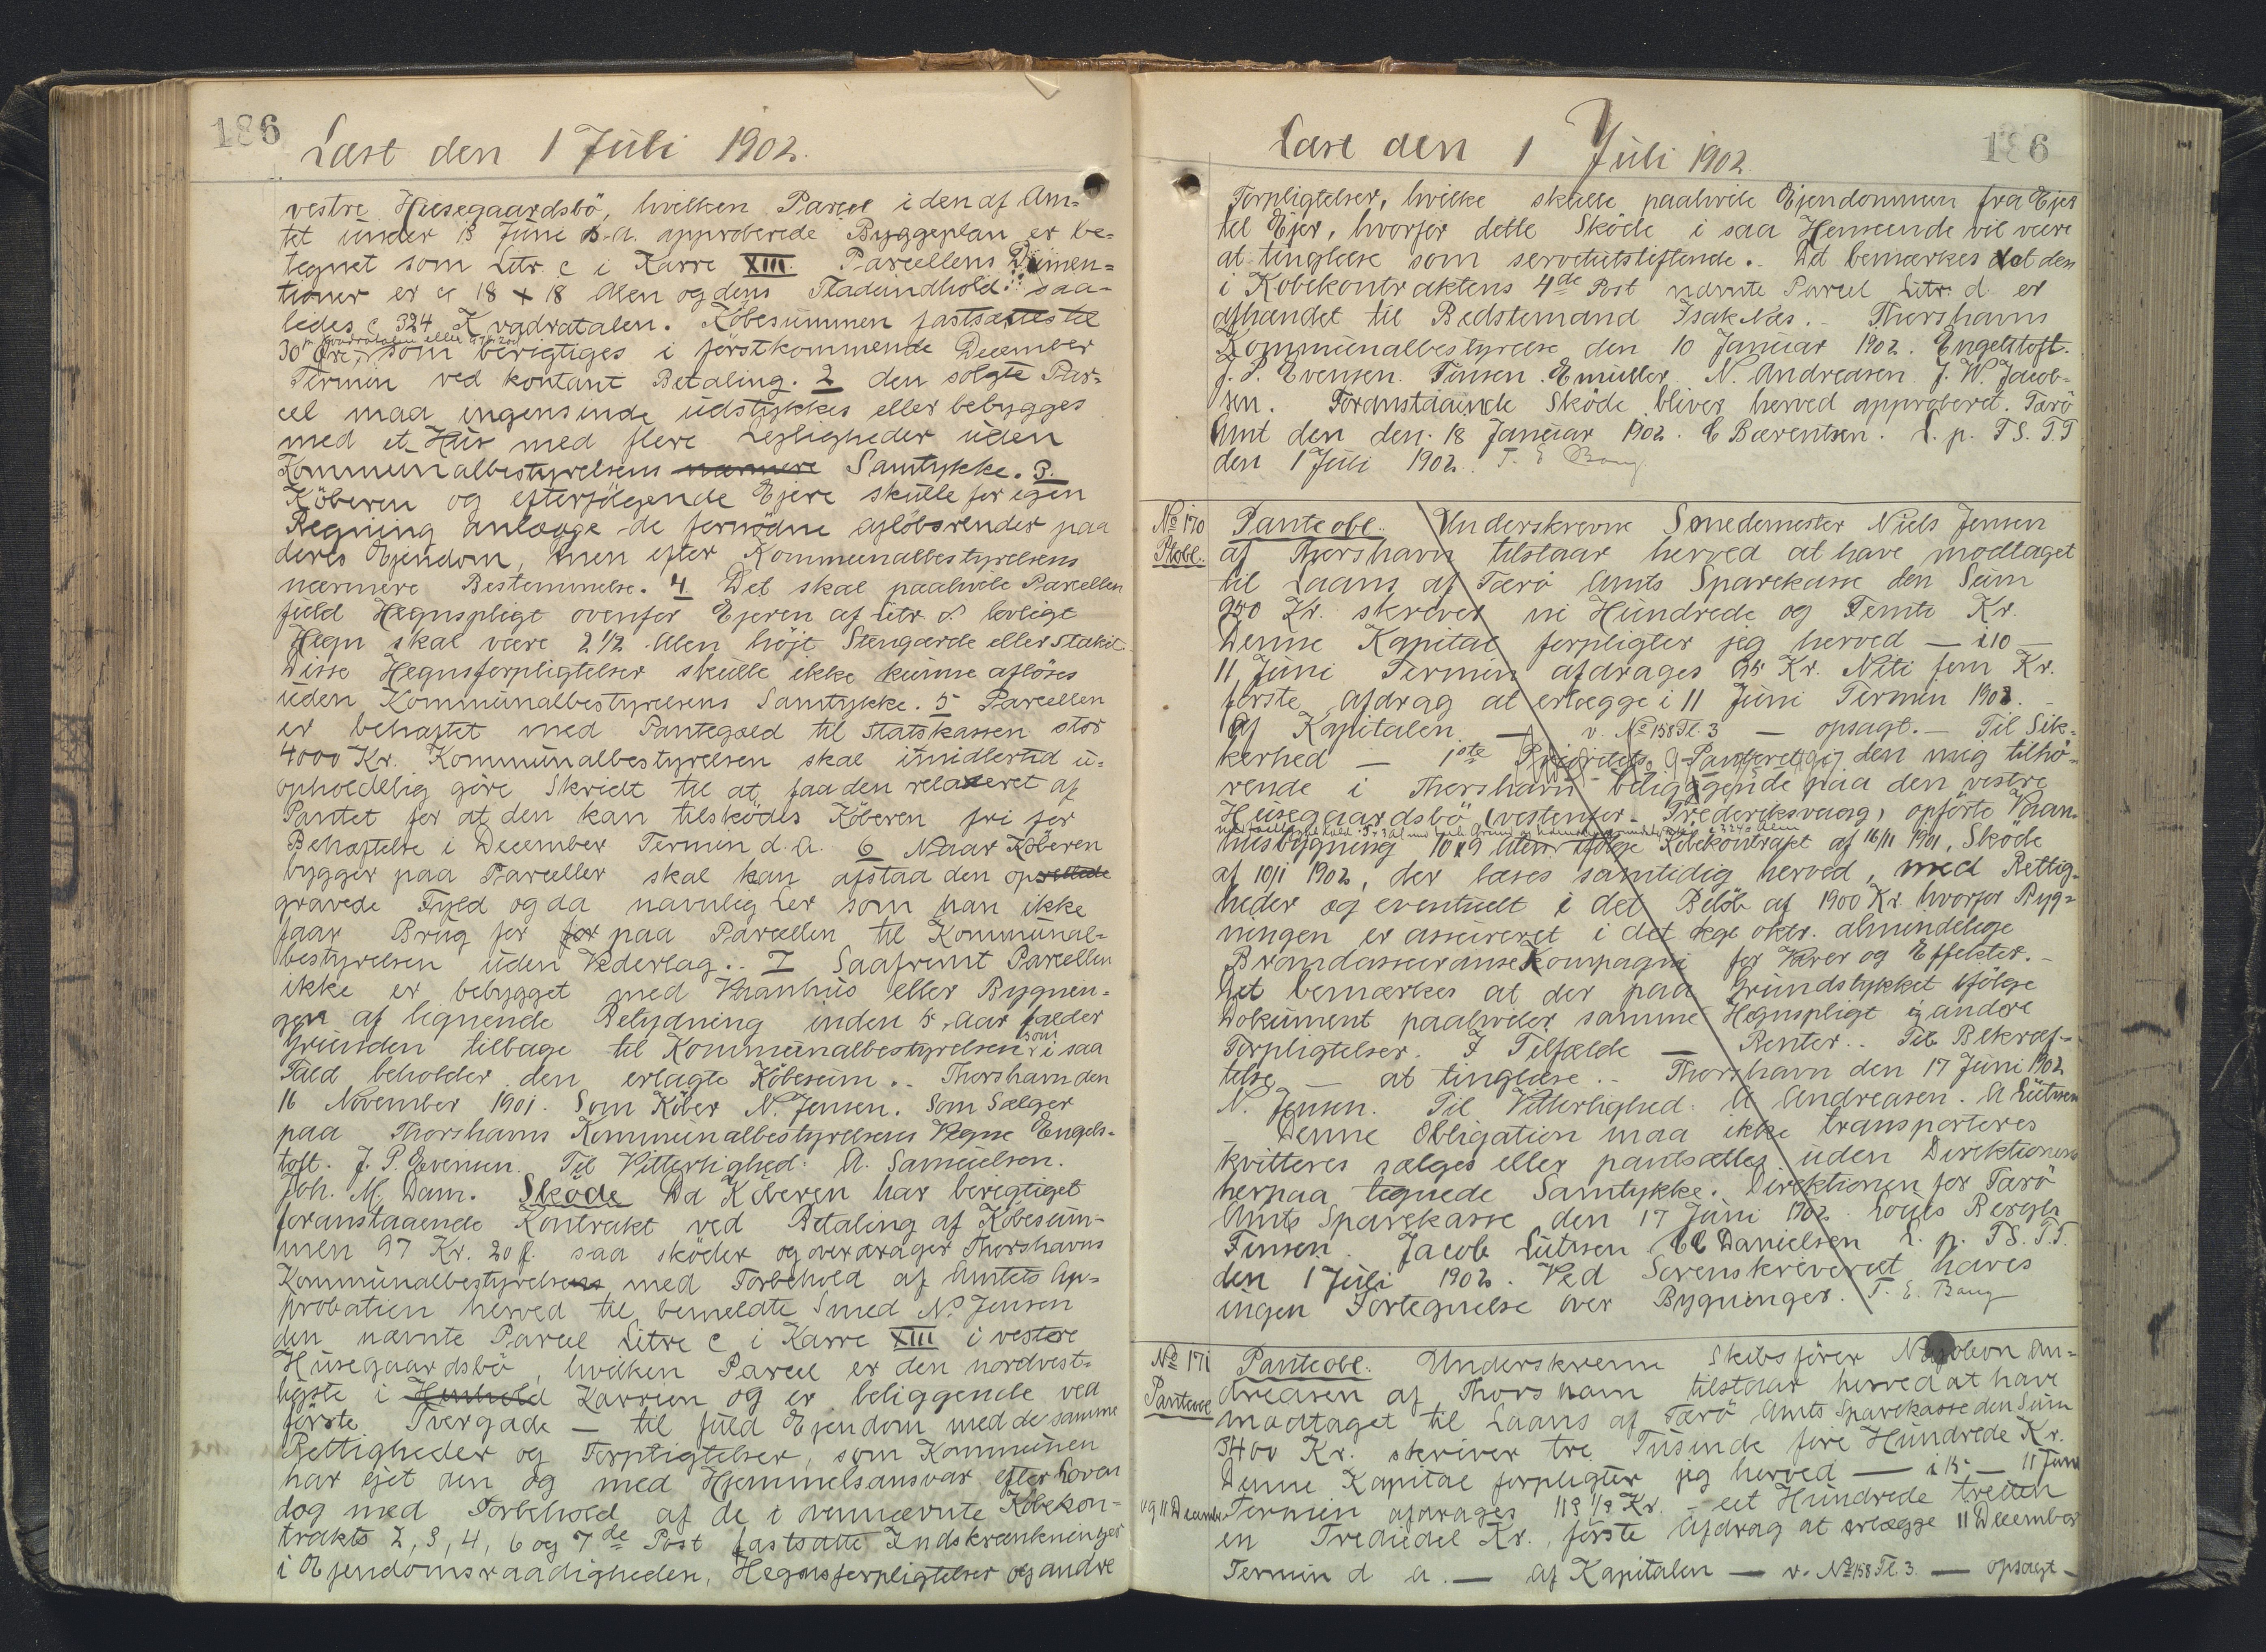 186
Læst den 1 Juli 1902.
vestre Husegaardsbö, hvilken Parcel i den af Am=
tet under 13 Juni s.a. approberede Byggeplan er be=
tegnet som Litr. c i Karre XIII. Parcellens Dimen=
tioner er c 18 x 18 Alen og dens Fladeindhold saa=
ledes c 324 Kvadratalen. Köbesummen fastsættes til
pr Kvadratalen eller 97 Kr 20 Ø
30 Øre, som berigtiges i förstkommende December
Termin ved kontant Betaling. 2 den solgte Par=
cel maa ingensinde udstykkes eller bebygges
med et Hus med flere Lejligheder uden
Kommunalbestyrelsens nærmere Samtykke. 3.
Köberen og efterfölgende Ejere skulle for egen
Regning anlægge de fornödne aflöbsrender paa
deres Ejendom, men efter Kommunalbestyrelsens
nærmere Bestemmelse. 4. Det skal paahvile Parcellen
fuld Hegnspligt ovenfor Ejeren af Litr d. lovligt
Hegn skal være 2 1/2 Alen höjt Stengærde eller Stakit
Disse Hegnsforpligtelser skulle ikke kunne aflöses
uden Kommunalbestyrelsens Samtykke. 5 Parcellen
er behæftet med Pantegæld til Statskassen stor
4000 Kr. Kommunalbestyrelsen skal imidlertid u=
opholdelig göre Skridt til at faa den relaxeret af
Pantet for at den kan tilsködes Köberen fri for
Behæftelse i December Termin d.A. 6 Naar Köberen
bygger paa Parceller skal han afstaa den op
gravede Fyld og da navnlig Ler som han ikke
faar Brug for for paa Parcellen til Kommunal=
bestyrelsen uden Vederlag. 7 Saafremt Parcellen
ikke er bebygget med Vaanhus eller Bygnen=
gen af lignende Betydning inden 5 Aar falder
Grunden tilbage til Kommunalbestyrelsen som i saa
Fald beholder den erlagte Köbesum.. Thorshavn den
16 November 1901. Som Köber N. Jensen. Som Sælger
paa Thorshavns Kommunalbestyrelsens Vegne Engels=
toft. J. P. Evensen. Til Vitterlighed: A. Samuelsen.
Joh. M. Dam. Sköde Da Köberen har berigtiget
foranstaaende Kontrakt ved Betaling af Köbesum=
men 97 Kr. 20 Ø. saa sköder og overdrager Thorshavns
Kommunalbestyrelsens med Forbehold af Amtets Ap=
probation herved til bemeldte Smed N. Jensen
den nævnte Parcel Litre c i Karre XIII i vestere
Husegaardsbö, hvilken Parcel er den nordvest=
ligste i Henhold Karreen og er beliggende ved
förste Tvergade — til fuld Ejendom med de samme
Rettigheder og Forpligtelser, som Kommunen
har ejet den og med Hjemmelsansvar efter Loven
dog med Forbehold af de i ovennævnte Köbekon=
trakts 2, 3, 4, 6 og 7de Post fastsatte Indskrænkninger
i Ejendomsraadigheden, Hegnsforpligtelser og andre
186
Læst den 1 Juli 1902
Forpligtelser, hvilke skulle paahvile Ejendommen fra Ejer
til Ejer, hvorfor dette Sköde i saa Henseende vil være
at tinglæse som servitutstiftende. Det bemærkes at den
i Köbekontraktens 4de Post nævnte Parcel Litr. d er
afhændet til Bedstemand Isak Næs. — Thorshavns
Kommunalbestyrelse den 10 Januar 1902. Engelstoft.
J. P. Evensen. Finsen. E Müller N. Andreasen J. W. Jacob=
sen. Foranstaaende Sköde bliver herved approberet. Færö
Amt den den 18 Januar 1902. C Bærentsen. L. p. T S. T.T
den 1 Juli 1902. T. E Bang
No 170
Ptobl.
Panteobl. Underskrevne Smedemester Niels Jensen
af Thorshavn tilstaar herved at have modtaget
til Laans af Færö Amts Sparekasse den Sum
950 Kr. skriver ni Hundrede og Femti Kr.
Denne Kapital forpligter jeg herved — i 10 —
11 Juni Termin afdrages 95 Kr. Niti fem Kr.
förste Afdrag at erlægge i 11 Juni Termin 1903. —
af Kapitalen — v. No 158 Fl. 3 — opsagt. — Til Sik=
kerhed — 1ste Prioritets Panteret i den mig tilhö=
rende i Thorshavn beliggende paa den vestre
Husegaardsbö (vestenfor Frederiksvaag) opförte Vaan=
husbygning 10 x 9 Alen ifölge Köbekontrakt af 16/11 1901, Sköde
af 10/1 1902, der læses samtidig herved, med Rettig=
heder og eventuelt i det Belöb af 1900 Kr. hvorfor Byg=
ningen er assureret i det kge oktr. almindelige
Brandassuranse Kompagni for Varer og Effekter. —
Det bemærkes at der paa Grundstykket ifölge
Dokument paahviler samme Hegnspligt og andere
Forpligtelser. I Tilfælde — Renter.. Til Bekræf=
telse — at tinglæse. — Thorshavn den 17 Juni 1902
N. Jensen. Til Vitterlighed: A Andreasen. A Lützen
Denne Obligation maa ikke transporteres
kvitteres sælges eller pantsættes uden Direktionens
herpaa tegnede Samtykke. Direktionen for Færö
Amts Sparekasse den 17 Juni 1902. Louis Bergh
Finsen. Jacob Lützen C C Danielsen L. p. T S. T.T.
den 1 Juli 1902. Ved Sorenskriveriet haves
ingen Fortegnelse over Bygninger. T. E. Bang
No 171
Panteobl
Panteobl. Underskrevne Skibsförer Napoleon An=
dreasen af Thorshavn tilstaar herved at have
modtaget til Laans af Færö Amts Sparekasse den Sum
3400 Kr. skriver tre Tusinde fire Hundrede Kr.
Denne Kapital forpligter jeg herved — i 15 — 11 Juni
og 11 December Termin afdrages 113 1/3 Kr. — eet Hundrede tretten
en Trediedel Kr., förste Afdrag at erlægge 11 December
Termin d a. — af Kapitalen — v. No 158 Fl. 3. — opsagt —